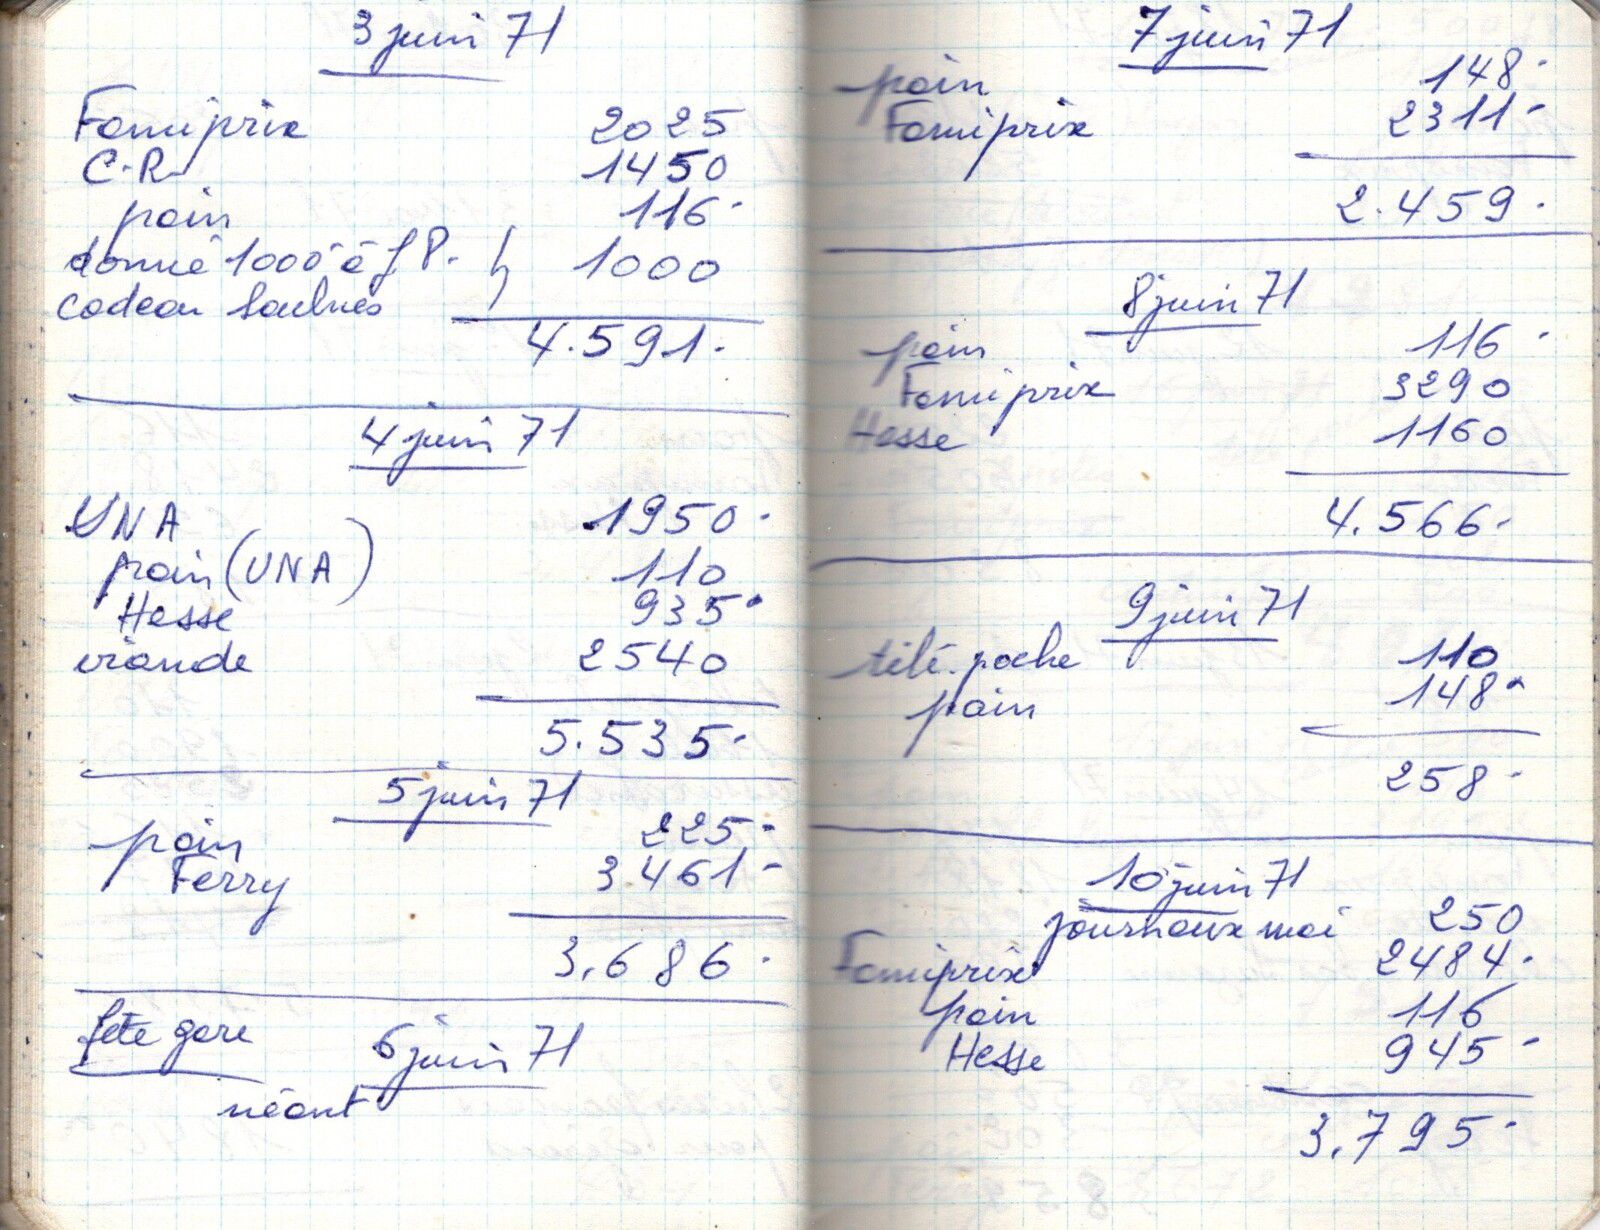 3 juin 71
Famiprix 2025
C.R. 1450
pain 116.
donné 1000 à J P. 1000
cadeau Saulnes
4.591.
4 juin 71
UNA 1950.
pain (UNA) 110
Hesse 935.
viande 2540
5.535.
5 juin 71
pain 225-
Ferry 3461-
3.686.
fete gare 6 juin 71
néant
7 juin 71
pain 148.
Famiprix 2311-
2.459.
8 juin 71
pain 116.
Famiprix 3290
Hesse 1160
4.566.
9 juin 71
télé-poche 110
pain 148.
258.
10 juin 71
journaux moi 250
Famiprix 2484.
pain 116
Hesse 945.
3.795.